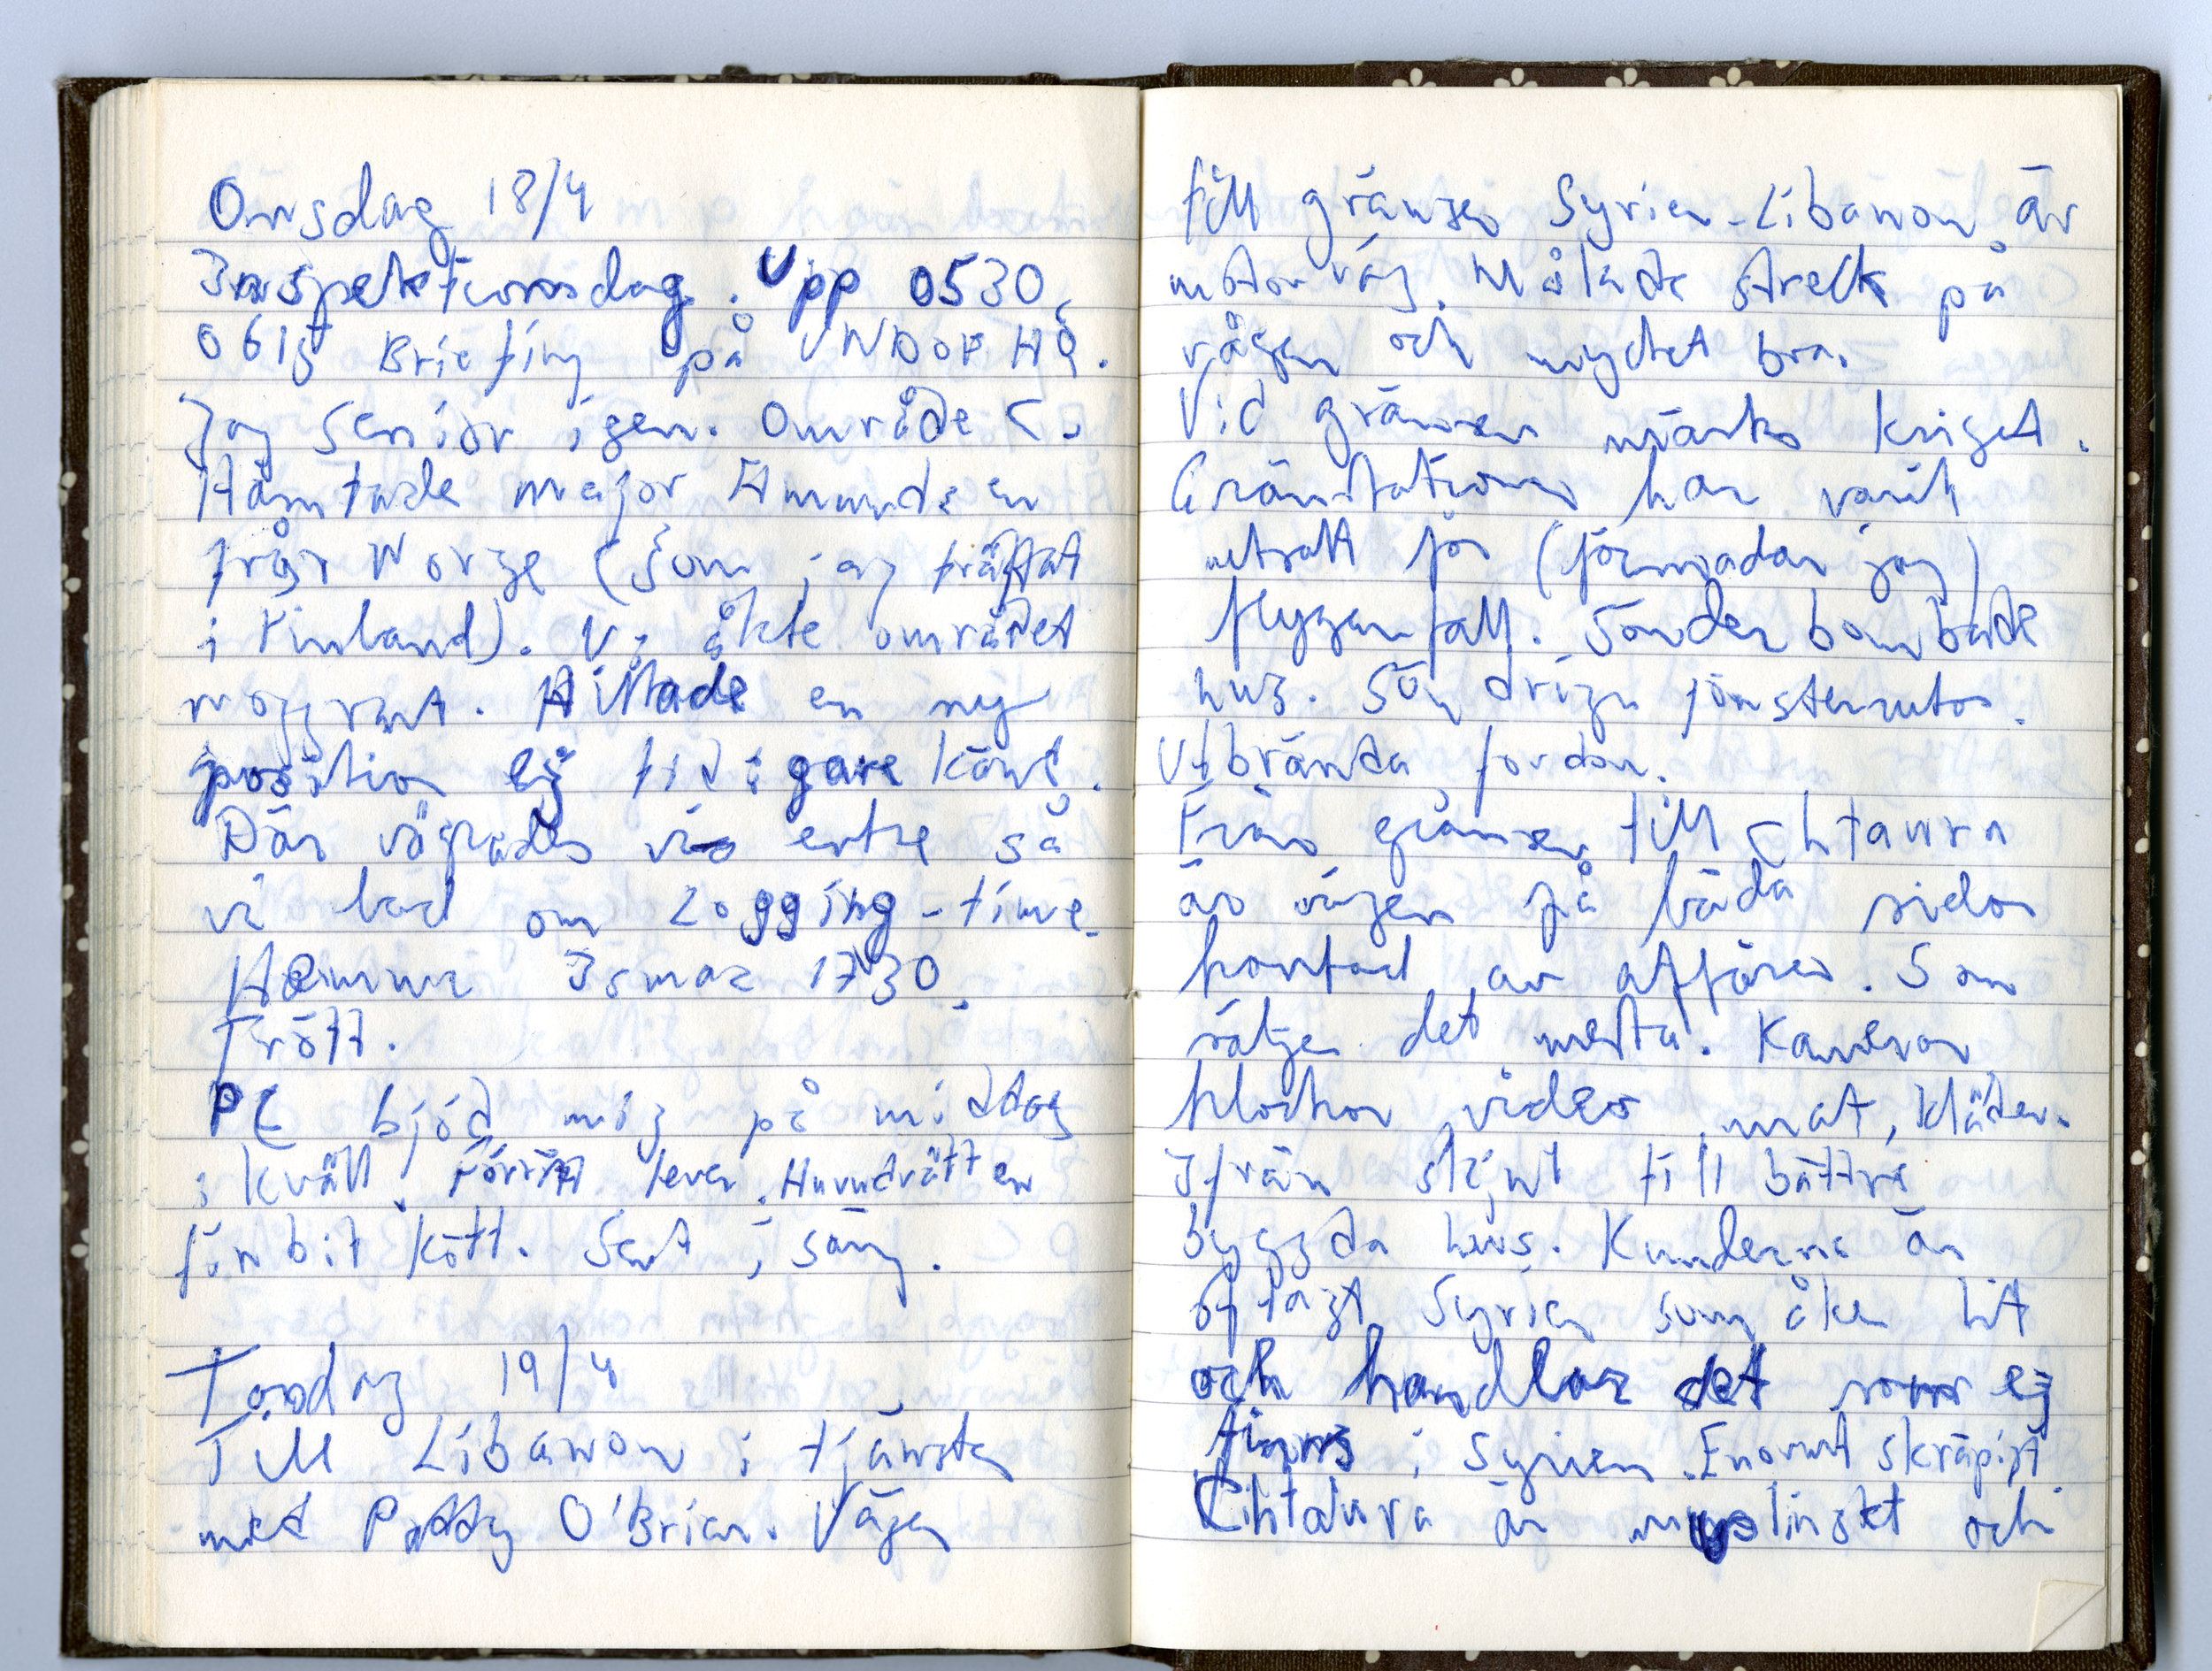 Onsdag 18/4
Inspektionsdag. Upp 0530.
0615 Briefing på UNDOF HQ.
Jag senior igen. Område C.
Hämtade major Amundsen
från Norge (som jag träffat
i Finland). Vi åkte området
noggrant. Hittade en ny
position ej tidigare känd.
Där vägrades vi entre så
vi bad om Logging-time.
Hemma Ismar 1730.
Trött.
PC bjöd mig på middag
i kväll. Förrätt lever. Huvudrätt en
fin bit kött. Sent i säng.
Torsdag 19/4
Till Libanon i tjänsten
med Paddy O'Brien. Vägen
till gränsen Syrien-Libanon är
motorväg. Målade streck på
vägen och mycket bra.
Vid gränsen märks kriget.
Gränsstationen har varit
utsatt för (förmodar jag)
flyganfall. Sönderbombade
hus. Söndriga fönsterrutor.
Utbrända fordon.
Från gränsen till Chtaura
är vägen på båda sidor
kantad av affärer. Som
säljer det mesta. Kameror
klockor video, mat, kläder.
Ifrån skjul till bättre
byggda hus. Kunderna är
oftast Syrier som åker hit
och handlar det som ej
finns i Syrien. Enormt skräpigt.
Chtaura är muslimskt och